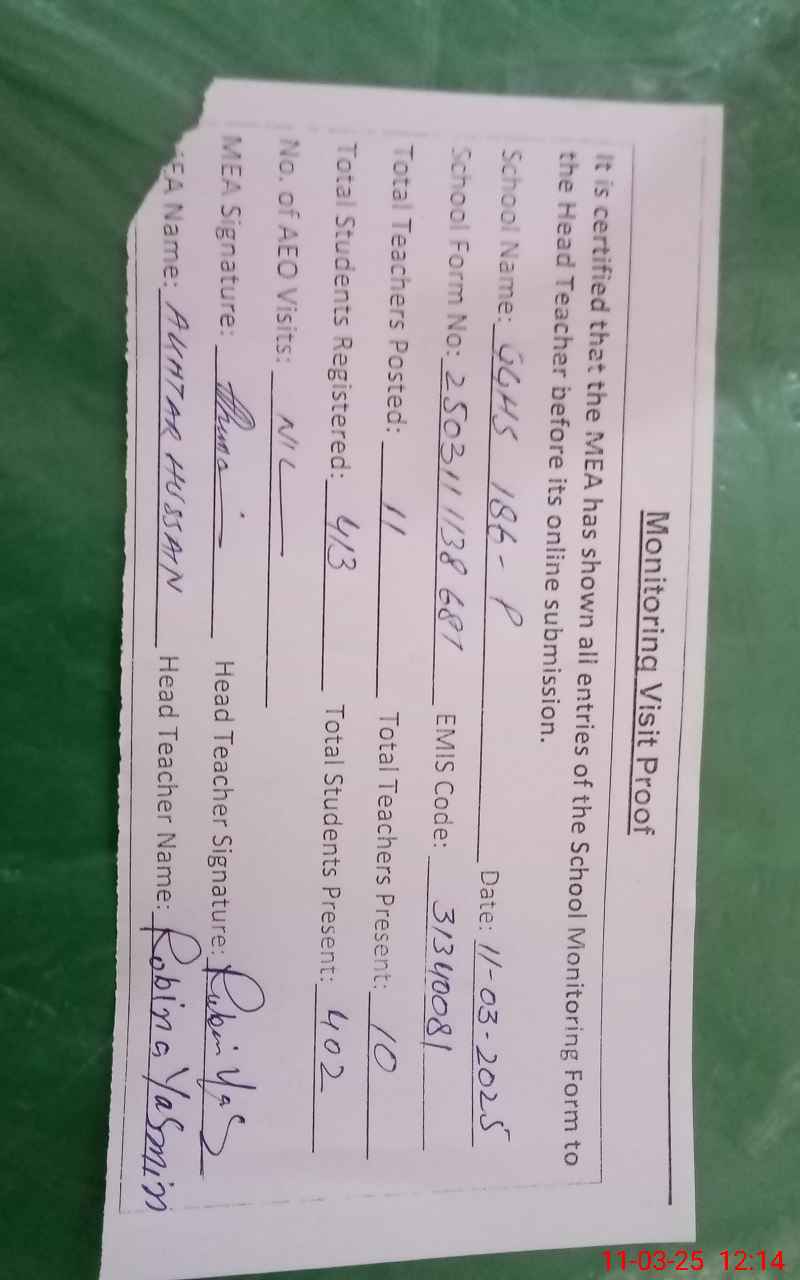 Monitoring Visit Proof
It is certified that the MEA has shown all entries of the School Monitoring Form to
the Head Teacher before its online submission.
School Name: GGHS 186-P Date: 11-03-2025
School Form No: 250311138687 EMIS Code: 31340081
Total Teachers Posted: 11 Total Teachers Present: 10
Total Students Registered: 413 Total Students Present: 402
No. of AEO Visits: NIL
MEA Signature: Head Teacher Signature:
EA Name: AKHTAR HUSSAIN Head Teacher Name: Robina Yasmin
11-03-25 12:14